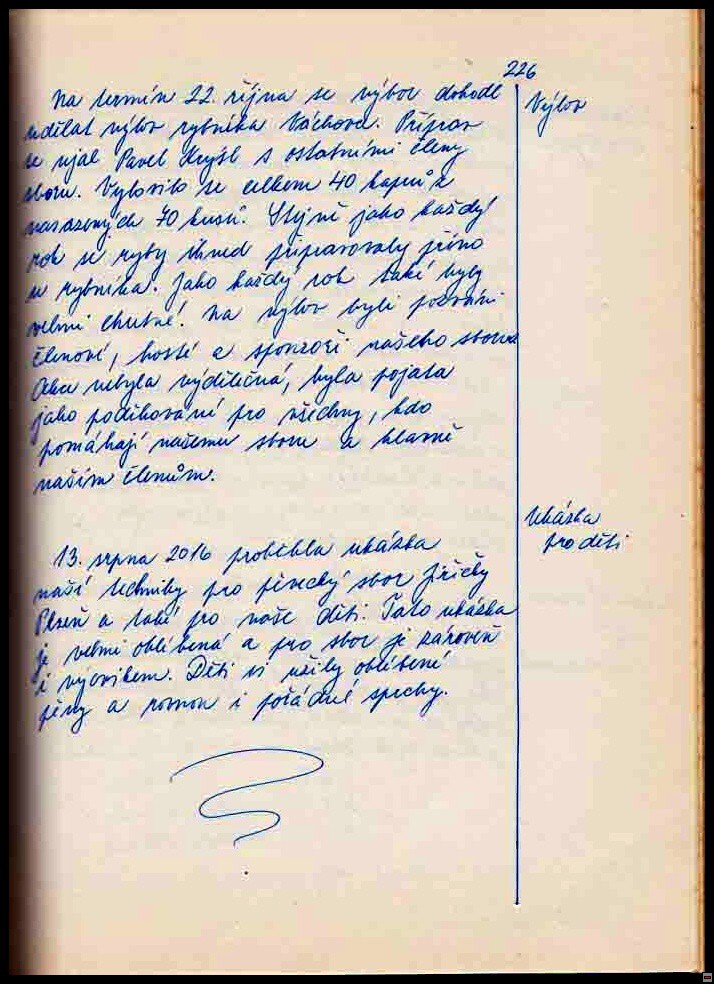 226
Na termín 22. října se výbor dohodl
udělat výlov rybníka Váchova. Příprav
se ujal Pavel Krýsl s ostatními členy
sboru. Vylovilo se celkem 40 kaprů z
nasazených 70 kusů. Stejně jako každý
rok se ryby ihned připravovaly přímo
u rybníka. Jako každý rok také byly
velmi chutné! Na výlov byli pozváni
členové, hosté a sponzoři našeho sboru.
Akce nebyla výdělečná, byla pojata
jako poděkování pro všechny, kdo
pomáhají našemu sboru a hlavně
našim členům.
Výlov
13. srpna 2016 proběhla ukázka
naší techniky pro pěvecký sbor
Plzeň a také pro naše děti. Tato ukázka
je velmi oblíbená a pro sbor je zároveň
i výcvikem. Děti si užily oblíbené
pěny a rovnou i pořádné sprchy.
Ukázka
pro děti